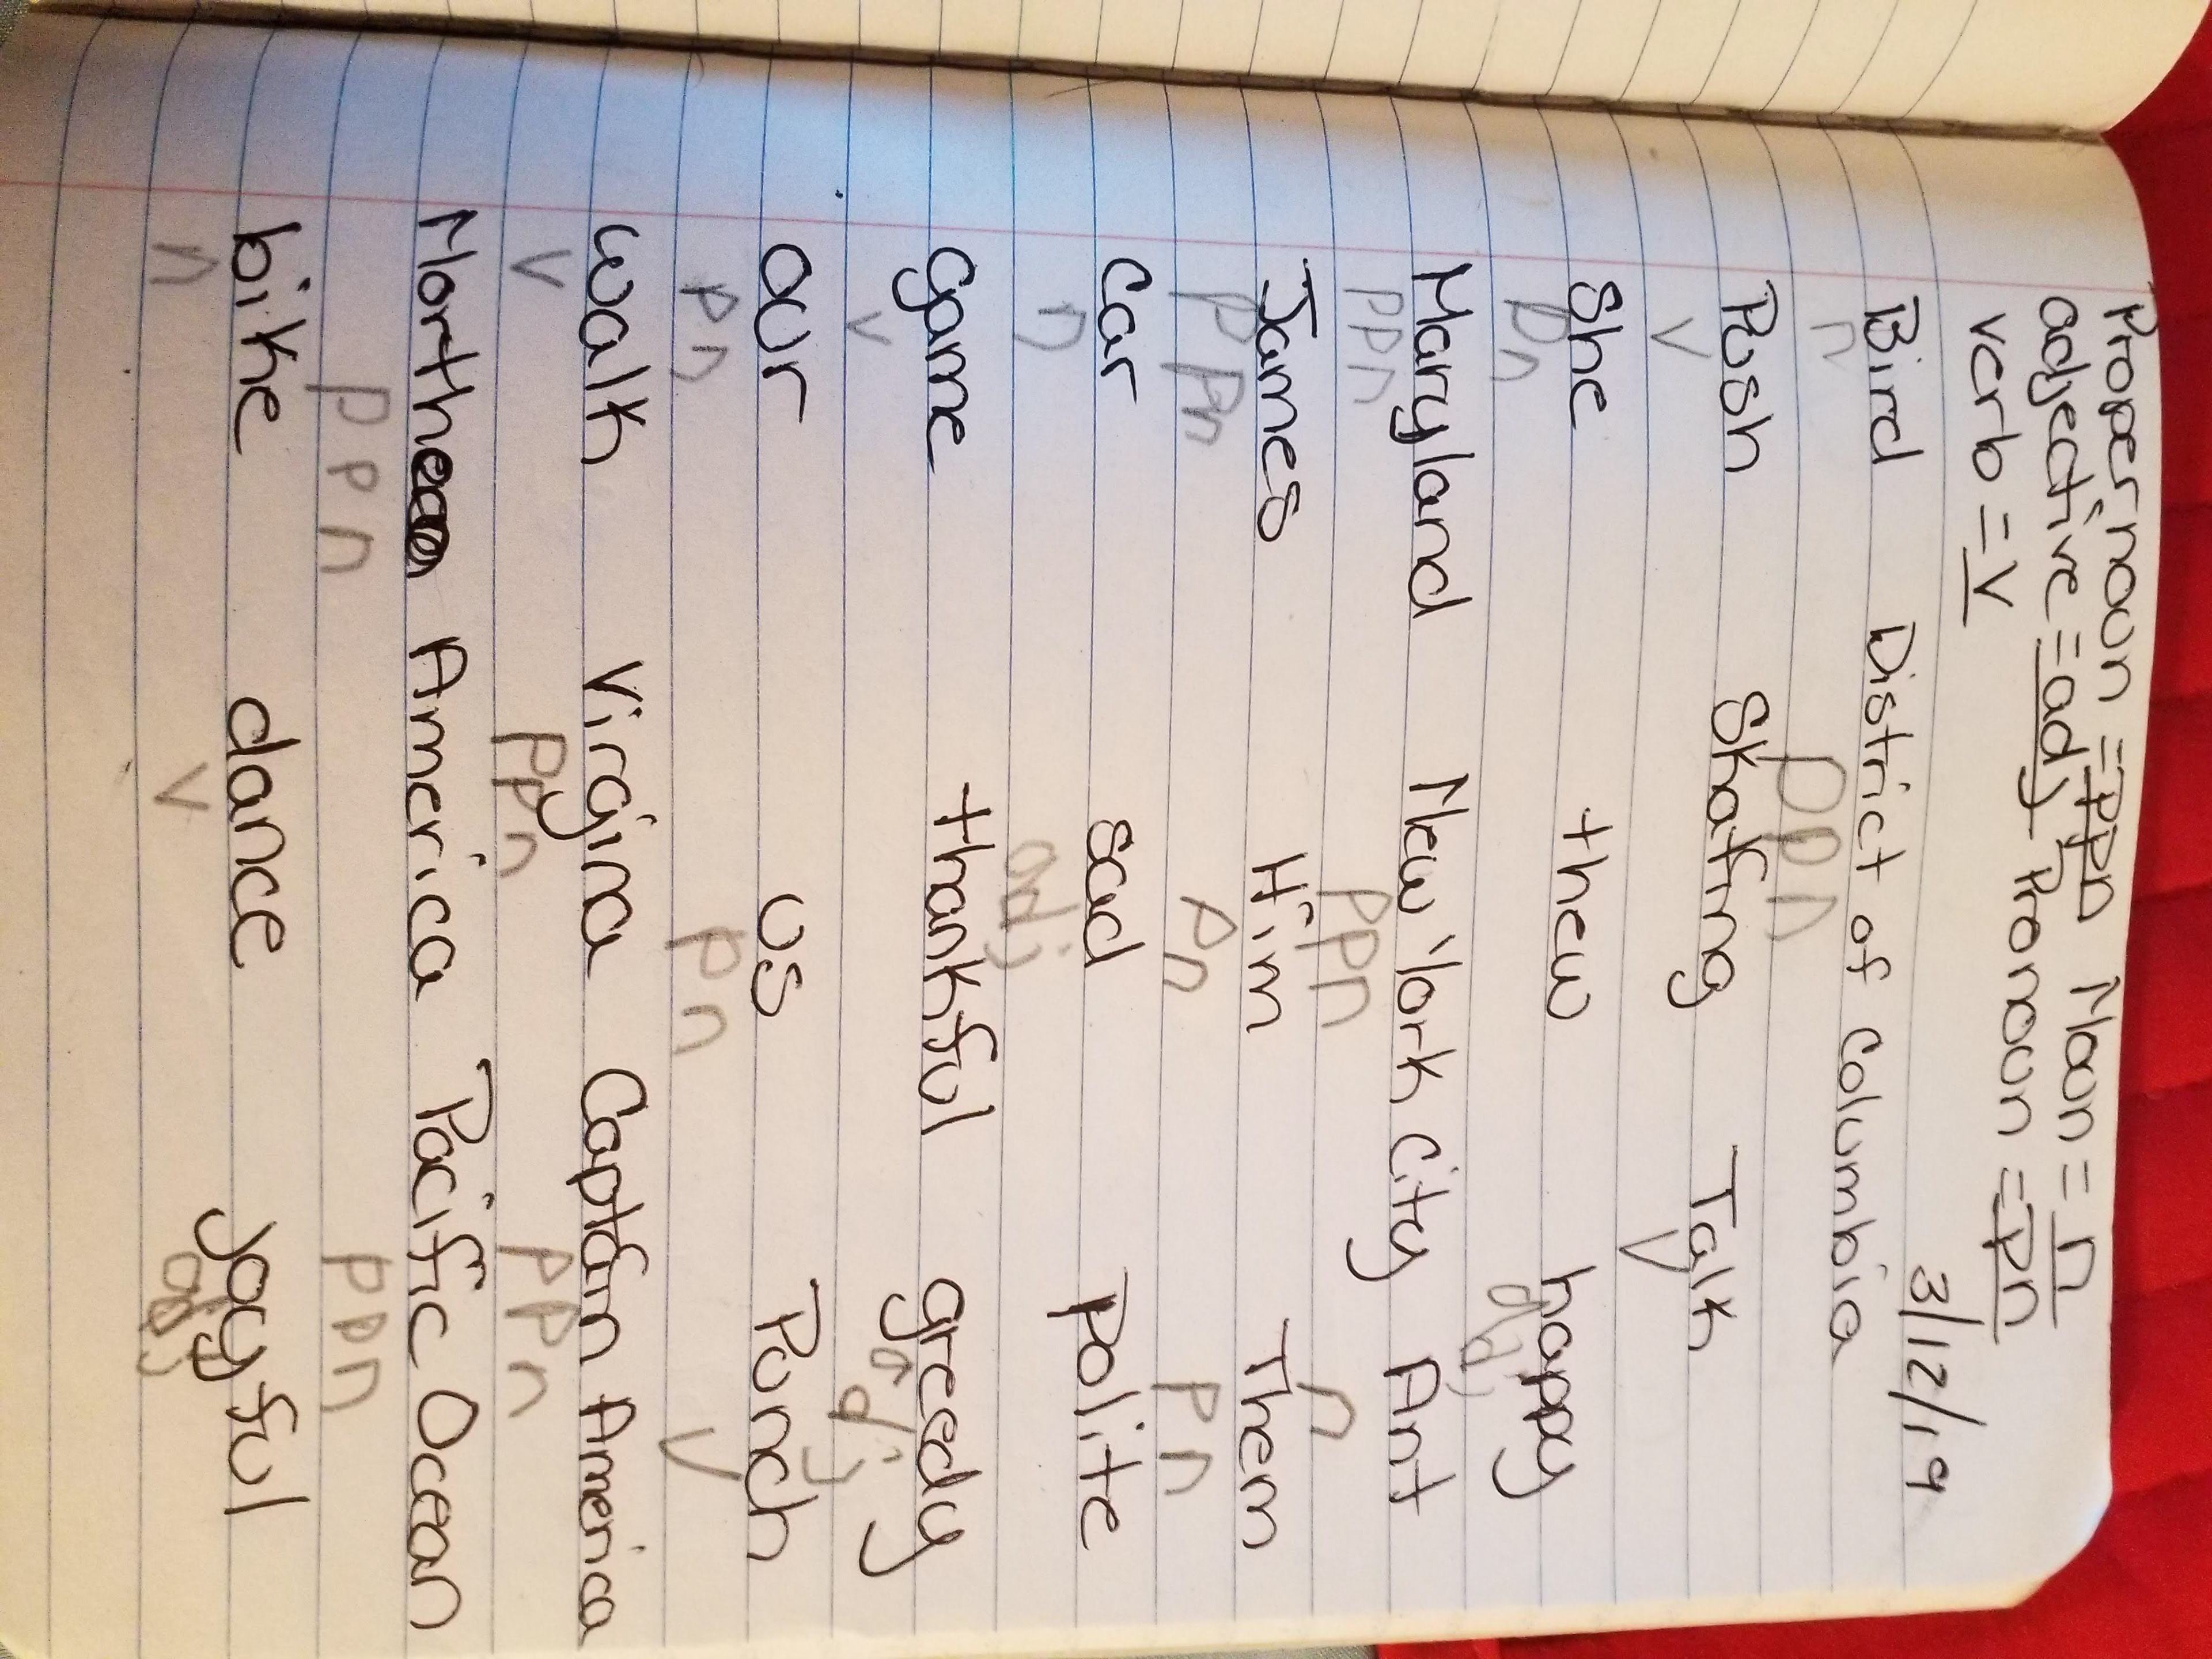 Proper noun = ppn Noun = n
adjective = adj Pronoun = pn
verb = v
3/12/19
Bird District of Columbia
n ppn
Push Skating Talk
v v
She thew happy
pn adj
Maryland New York City Ant
ppn ppn n
James Him Them
ppn pn pn
Car sad Polite
n adj
game thankful greedy
v adj
our us Punch
pn pn v
walk Virgina Captain America
v ppn ppn
North America Pacific Ocean
ppn ppn
bike dance joyful
n v adj